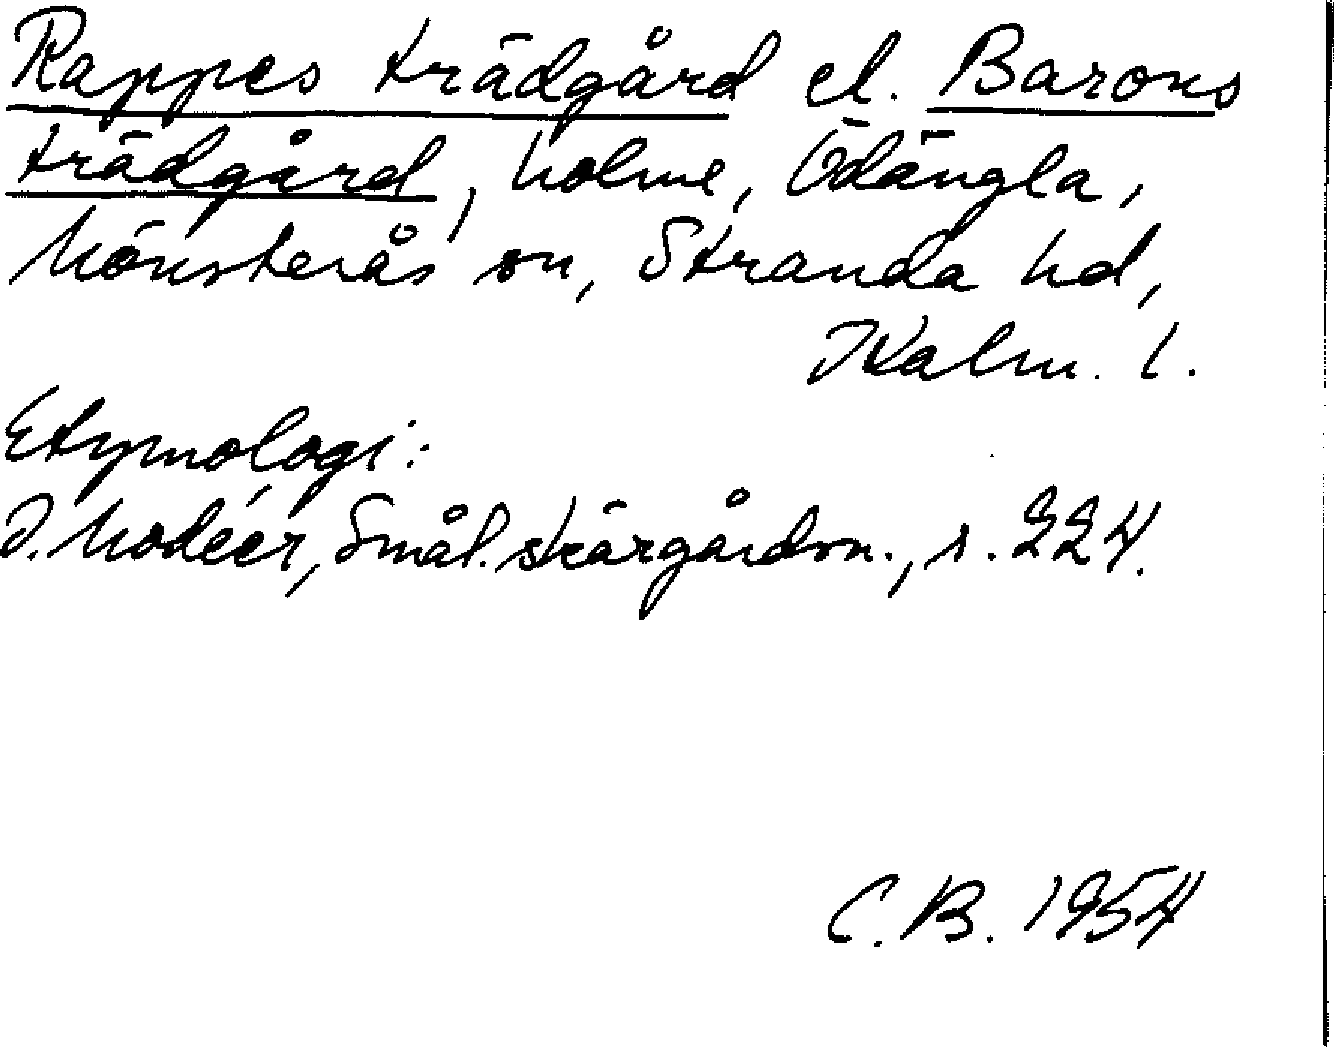 Rappes trädgård el. Barons
trädgård, holme, Ödängla,
Mönsterås sn, Stranda hd,
Kalm. l.
Etymologi:
I. Modéer, Smål. skärgårdsn., s. 224.
C. B. 1954